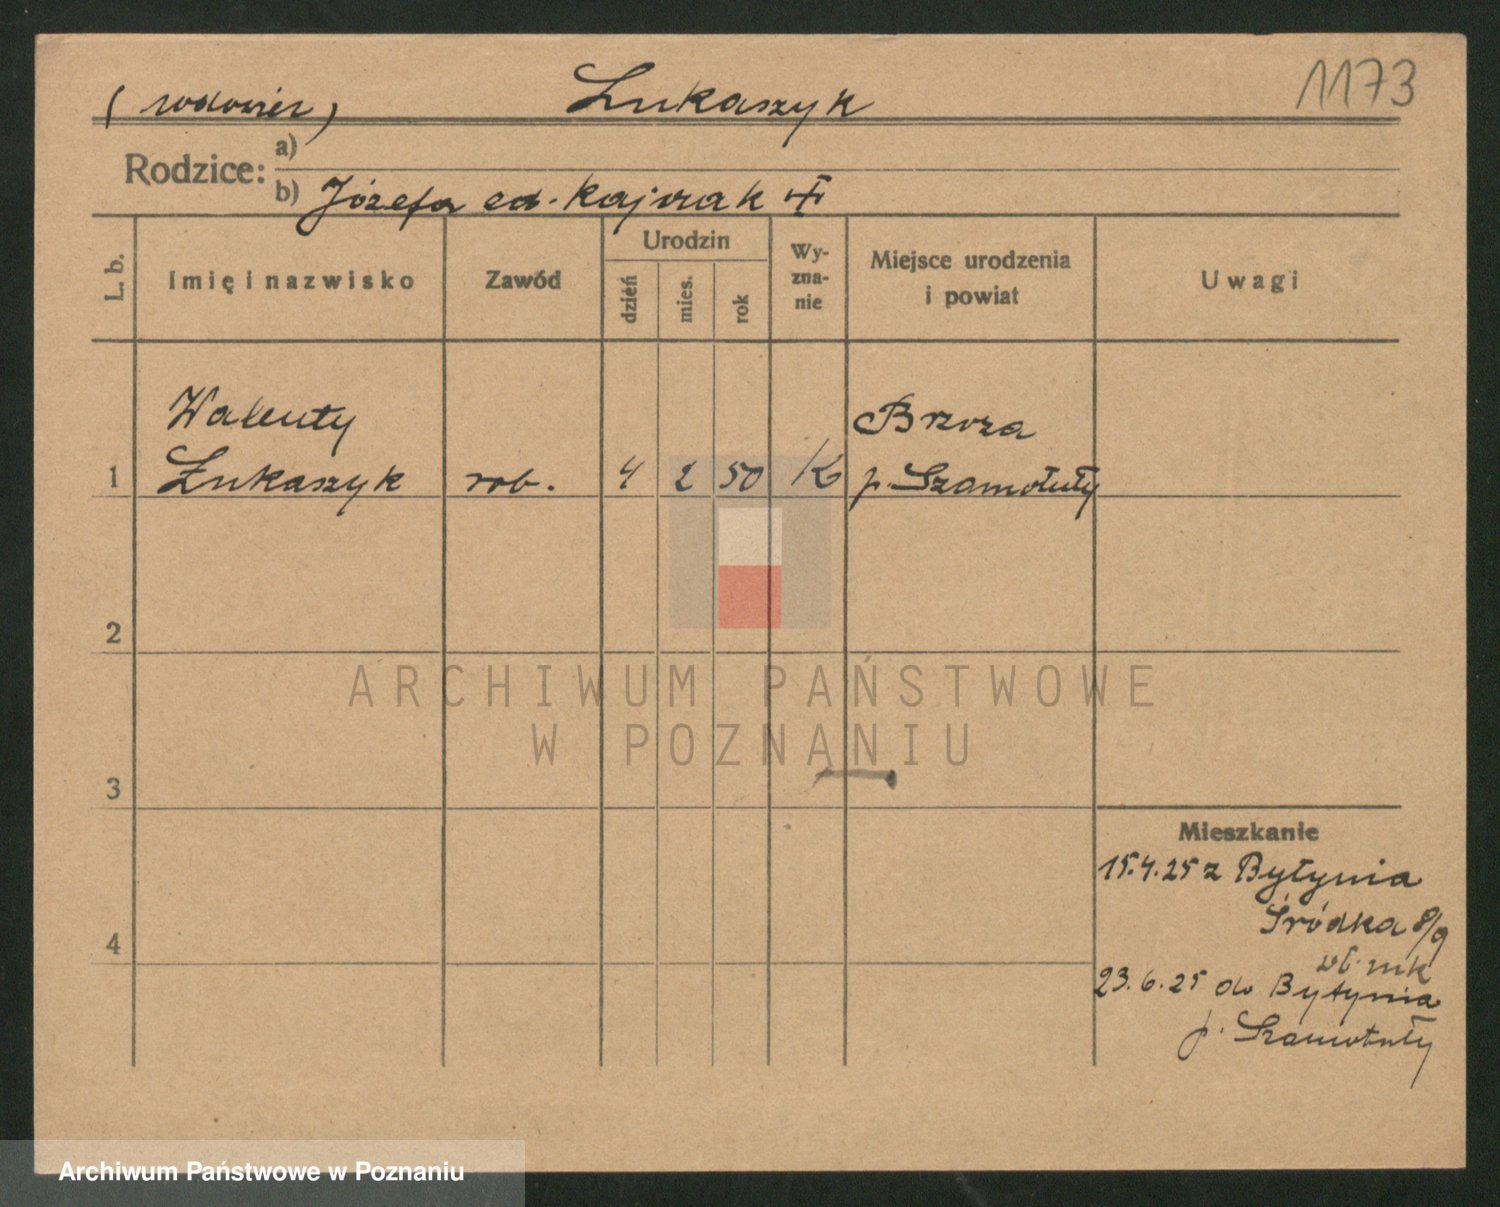 (wdowiec) Łukaszyk 1173
Rodzice: a)
b) Józefa Kajzrak
L. b. Imię i nazwisko Zawód Urodzin dzień mies. rok Wyznanie Miejsce urodzenia i powiat Uwagi
Walenty Brzoza
1 Łukaszyk rob. 4 2 50 K p. Szamotuły
2
ARCHIWUM PAŃSTWOWE
W POZNANIU
3
Mieszkanie
15.4.25 z Bytynia
Śródka 8/9
4
23.6.25 do Bytynia
p. Szamotuły
Archiwum Państwowe w Poznaniu